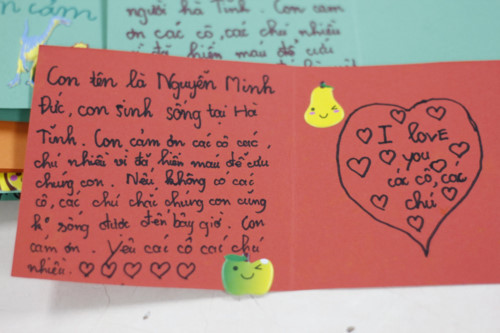 cảm
người hà Tĩnh. Con cảm
ơn các cô, các chú nhiều
vì đã hiến máu để cứu
Con tên là Nguyễn Minh
Đức, con sinh sống tại Hà
Tĩnh. Con cảm ơn các cô các,
chú nhiều vì đã hiến máu để cứu
chúng con. Nếu không có các
cô, các chú chắc chúng con cũng
kể sống được đến bây giờ. Con
cảm ơn. Yêu các cô các chú
nhiều.
I love
you
các cô, các
chú